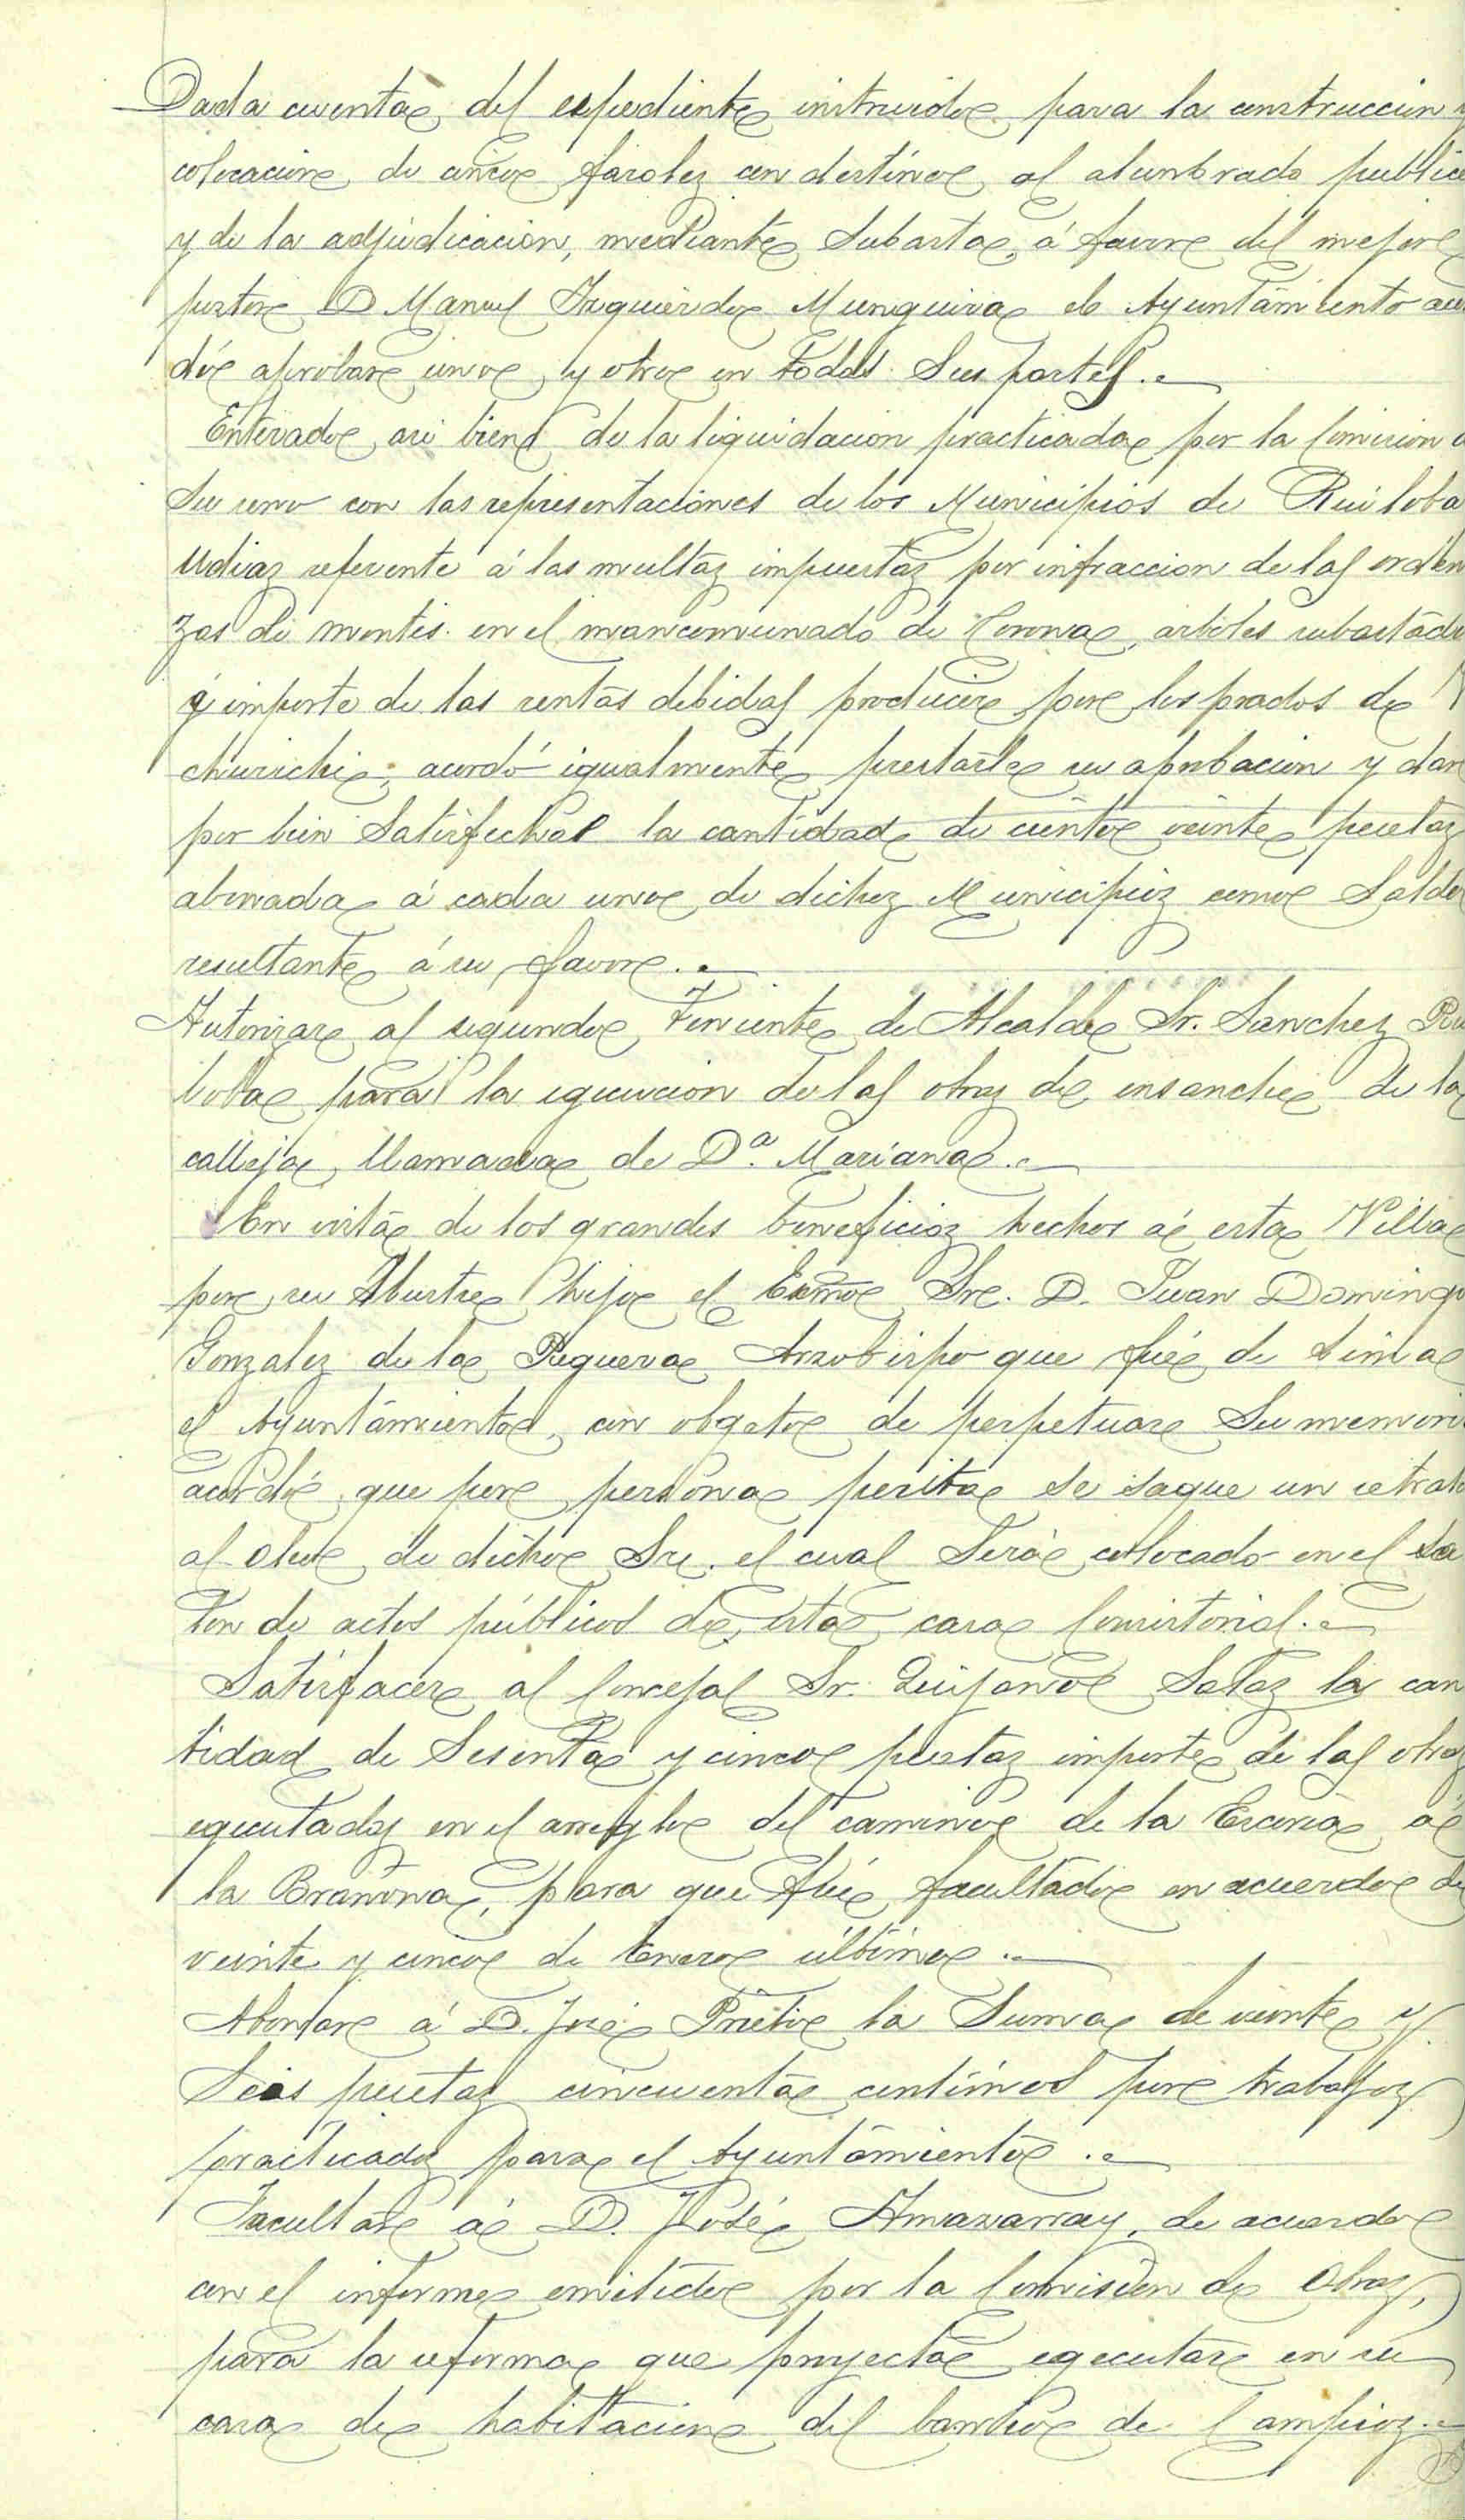 Dada cuenta del espediente instruido para la construccion y
colocacion de cinco faroles con destino al alumbrado publico
y de la adjudicacion, mediante subasta, á favor del mejor
postor D Manuel Izquierdo Munguira el Ayuntamiento acor
dó aprobar uno y otro en todas sus partes.
Enterado asi bien de la liquidacion practicada por la Comision de
su seno con las representaciones de los Municipios de Ruiloba
Udias referente á las multas impuestas por infraccion de las orden
zas de montes en el mancomunado de Corona, arboles subastado
é importe de las rentas debidas producir por los prados de
churichi; acordó igualmente prestarle su aprobacion y dar
por bien satisfecha la cantidad de ciento veinte pesetas
abonada á cada uno de dichos Municipios como saldo
resultante á su favor.
Autorizar al segundo Teniente de Alcalde Sr. Sanchez Rui
loba para la egecucion de las obras de ensanche de la
calleja llamada de Dª. Mariana.
En vista de los grandes beneficios hechos á esta Villa
por su Ilustre hijo el Excmo Sr. D. Juan Domingo
Gonzalez de la Reguera Arzobispo que fué de Lima
el Ayuntamiento, con obgeto de perpetuar su memoria
acordó que por persona perita se saque un retrato
al oleo de dicho Sr. el cual será colocado en el sa
lon de actos públicos de esta casa Consistorial.
Satisfacer al Concejal Sr. Quijano Salas la can
tidad de sesenta y cinco pesetas importe de las obras
egecutadas en el arreglo del camino de la Escaria á
la Brañona, para que fué facultado en acuerdo de
veinte y cinco de Enero último.
Abonar á D. José Prieto la suma de veinte y
seis pesetas cincuenta centimos por trabajos
practicados para el Ayuntamiento.
Facultar á D. José Amavarray, de acuerdo
con el informe emitido por la Comision de Obras,
para la reforma que proyecta egecutar en su
casa de habitacion del barrio de Campios.